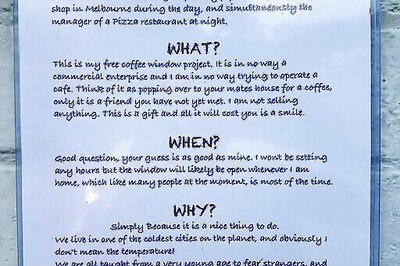 shop in Melbourne during the day, and simultaneously the
manager of a Pizza restaurant at night.
WHAT?
This is my free coffee window project. It is in no way a
commercial enterprise and I am in no way trying to operate a
cafe. Think of it as popping over to your mates house for a coffee,
only it is a friend you have not yet met. I am not selling
anything. This is a gift and all it will cost you is a smile.
WHEN?
Good question, your guess is as good as mine. I wont be setting
any hours but the window will likely be open whenever I am
home, which like many people at the moment, is most of the time.
WHY?
Simply Because it is a nice thing to do.
We live in one of the coldest cities on the planet, and obviously I
don't mean the temperature!
We are all taught from a very young age to fear strangers, and